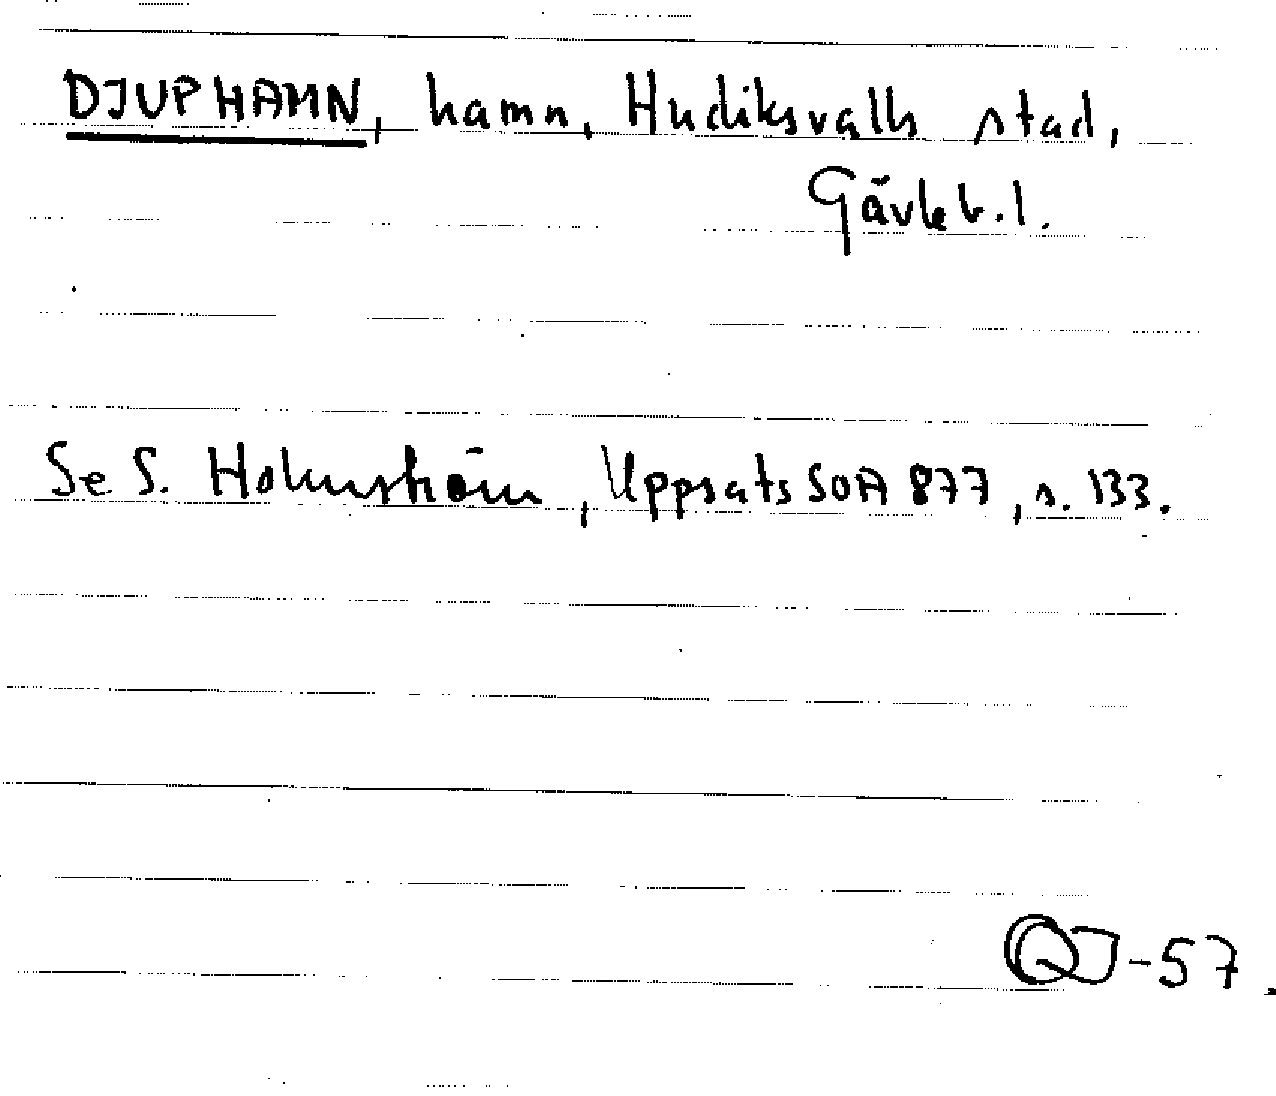 DJUPHAMN, hamn, Hudiksvalls stad,
Gävleb.l.
Se S. Holmström, Uppsats SOA 877, s. 133.
-57.